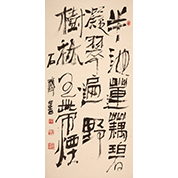 半池蓮藕碧
凝翠遍野
樹林帶煙
石